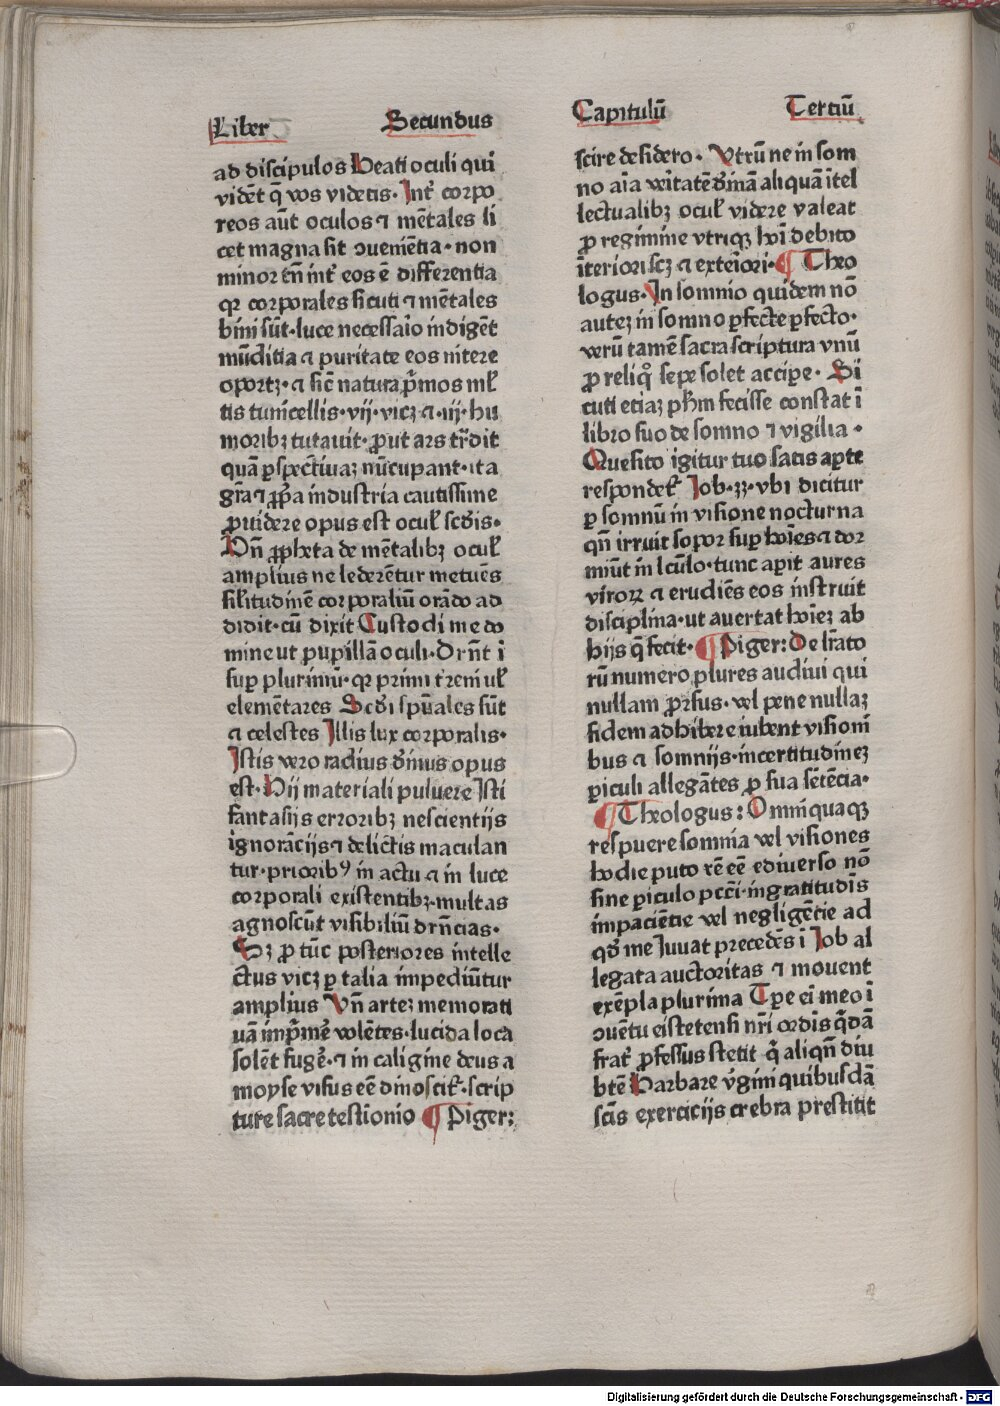 Liber Secundus
Capitulū Terciū
ad discipulos Beati oculi qui
vidēt q̄ vos videtis. Int᷑ corpo
reos aūt oculos ⁊ mētales li
cet magna sit ꝯueniētia. non
minor tn̄ int᷑ eos ē differentia
qꝛ corporales sicuti ⁊ mētales
bini sūt. luce necessaīo indigēt
mūditia ⁊ puritate eos nitere
oportꝫ. ⁊ sic̄ natura p̄mos ml̄
tis tunicellis. vij. vicꝫ ⁊ .iij. hu
moribꝫ tutauit. ꝓut ars tr̄dit
quā ꝑspectiuaꝫ nūcupant. ita
gr̄a ⁊ ꝓp̄a industria cautissime
ꝓuidere opus est ocul̄ scd̄is.
Un̄ ꝓpheta de mētalibꝫ ocul̄
amplius ne lederētur metuēs
sil̄itudinē corporaliū orādo ad
didit. cū dixit Custodi me do
mine ut pupillā oculi. Dr̄nt ī
suꝑ plurimū. qꝛ primi t̄reni ul̄
elemētares Scd̄i spūales sūt
⁊ celestes Illis lux corporalis.
Istis vero radius diuinus opus
est. Hij materiali puluere Isti
fantasijs erroribꝫ nescientijs
ignorācijs ⁊ delictis maculan
tur. prioribꝰ in actu ⁊ in luce
corporali existentibꝫ. multas
agnoscūt visibiliū dr̄ncias.
Sꝫ ꝓ tūc posteriores intelle
ctus vicꝫ ꝑ talia impediūtur
amplius Un̄ arteꝫ memorati
uā imp̄mē volētes. lucida loca
solēt fugē. ⁊ in caligine deus a
moyse visus eē dinoscit᷑. scrip
ture sacre testīonio ¶ Piger:
scire desidero. Utrū ne in som
no aīa vītatē diuinā aliquā ītel
lectualibꝫ ocul̄ videre valeat
ꝓ regimine vtriqꝫ hoī debito
īteriori scꝫ ⁊ exteīori. ¶ Theo
logus. In somnio quidem nō
auteꝫ in somno ꝑfecte ꝑfecto.
verū tamē sacra scriptura vnū
ꝓ reliq̊ sepe solet accipe. Si
cuti etiaꝫ ph̄m fecisse constat ī
libro suo de somno ⁊ vigilia.
Quesito igitur tuo satis aꝑte
respondet᷑ Job. xxxiij. vbi dicitur
ꝑ somnū in visione nocturna
qn̄ irruit sopor suꝑ hoīes ⁊ dor
miūt in lc̄ulo. tunc aꝑit aures
virorꝝ ⁊ erudiēs eos instruit
disciplina. ut auertat hoīeꝫ ab
hijs q̄ fecit. ¶ Piger: De lr̄ato
rū numero plures audiui qui
nullam ꝓrsus. vel pene nullaꝫ
fidem adhibere iubent visioni
bus ⁊ somnijs. incertitudineꝫ
ꝑiculi allegātes ꝓ sua sētēcia.
¶ Theologus: Omni quaqꝫ
respuere somnia vel visiones
hodie puto rē eē ediuerso nō
sine ꝑiculo pcc̄i. ingratitudīs
impaciētie vel negligētie ad
qd̄ me Juuat precedēs ī Job al
legata auctoritas ⁊ mouent
exēpla plurima Tꝑe ei meo ī
ꝯuētu eistetensi nr̄i ordīs q̄dā
frat᷑ ꝓfessus stetit q̄ aliqn̄ diu
btē Barbare v̄gini quibusdā
scīs exercicijs crebra prestitit